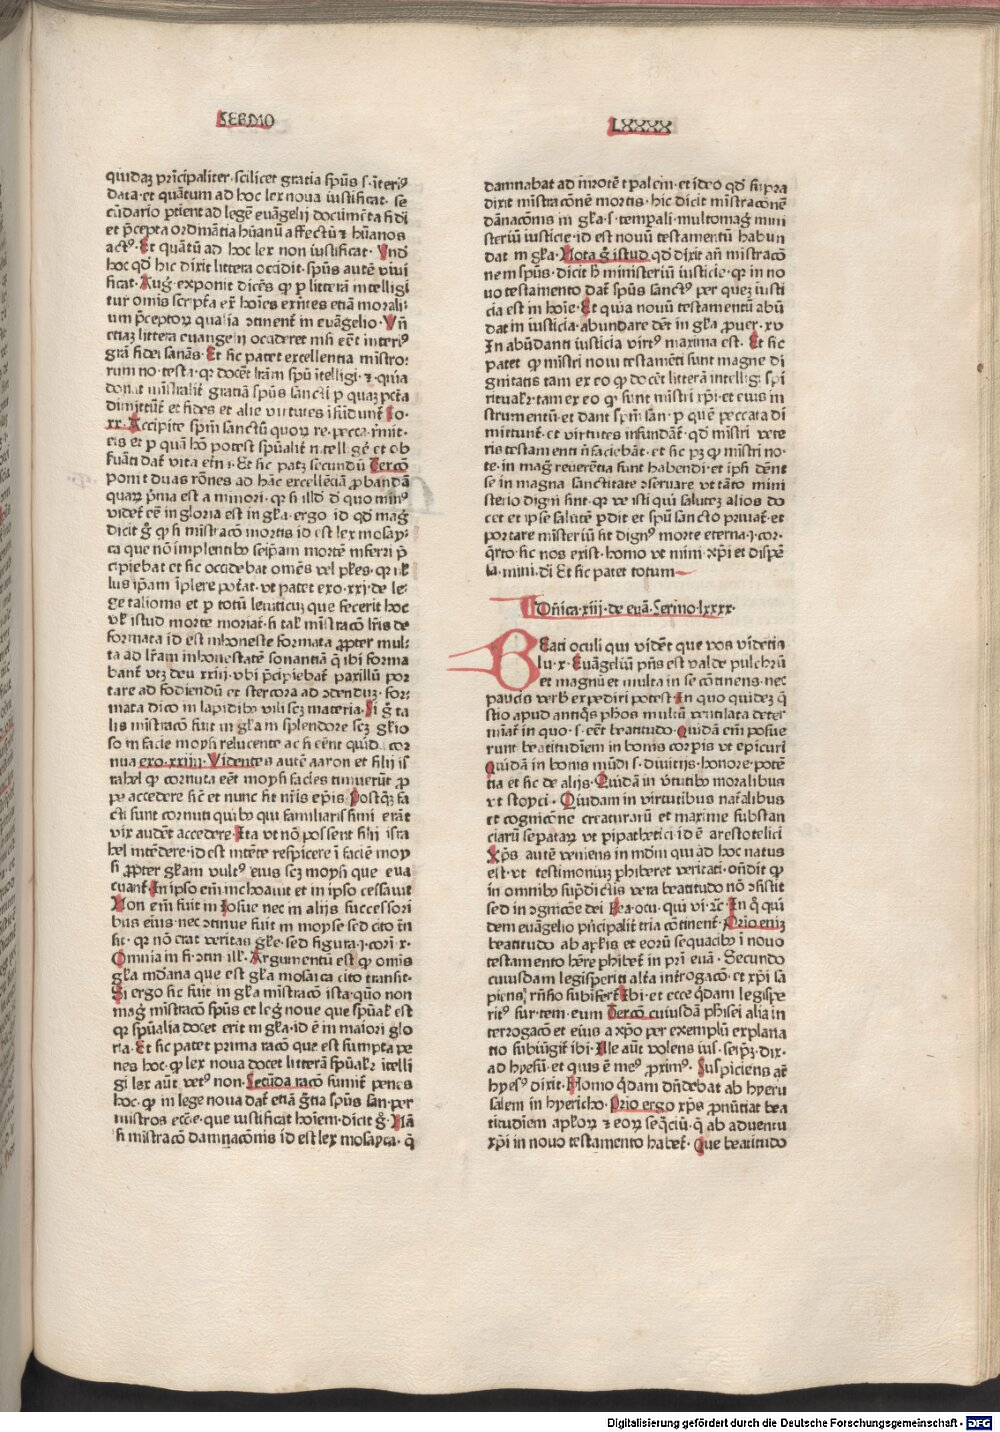 SERMO
LXXXX
quidaꝫ prīcipaliter scilicet gratia spūs s. īteriꝰ
data· et quātum ad hoc lex noua iustificat· se
cūdario ptient ad legē euāgelij documēta fidei
et p̄cepta ordināntia hūanū affectū ⁊ hūanos
actꝰ· Et quātū ad hoc lex non iustificat· Vnd̄
hoc qd̓ hic dixit littera occidit· spūs autē viui
ficat· Aug̓ exponit dicēs ꝙ p litterā intelligi
tur omīs scrip̄ta ex̄ hoīes ex̄ntes etiā morali
um p̄ceptoꝝ qualia ↄtinent̄ in euāgelio· Vn̄
etiaꝫ littera euangelij occideret nisi eēt interiꝰ
gr̄a fidei sanās· Et sic patet excellentia mīstro
rum no· testa· qꝛ docēt lr̄am spū ītelligi· ⁊ quia
donāt mīstralit̓ gratiā spūs sancti p quaꝫ pctā
dimittūt̄ et fides et alie virtutes īfūdunt̄ Io·
xx· Accipite spm̄ sanctū quoꝝ re· pecca· r̄mit·
eis et p quā hō potest spūalit̓ intelligē et ob
ẜuāti dat̄ vita et̄ni· Et sic patꝫ secundū Tercō
ponit duas rōnes ad hāc excellēciā ꝓbandā
quaꝝ p̄ma est a minori· qꝛ si illd̓ d̄ quo minꝰ
videt̄ eē in gloria est in gl̄a· ergo id qd̓ mag̓
dicit ḡ ꝙ si mīstracō mortis id est lex mosay·
ca que nō implentibꝰ seip̄am mortē inferri p̄
cipiebat et sic occidebat omēs vel pl̓es· qꝛ nl̓
lus ip̄am īplere pot̓at· vt patet exo· xxj· de le
ge talionis et p totū leuiticuꝫ que fecerit hoc
vl̓ istud morte moriat̄· si tal̓ mīstracō lr̄is de
formata id est inhoneste formata ꝓpter mul
ta ad lr̄am inhonestatē sonantia q̄ ibi forma
bant̄ vtꝫ deu xxiij· vbi p̄cipiebat̄ paxillū por
tare ad fodiendū et stercora ad ↄdenduꝫ· for
mata dico in lapidibꝰ vili scꝫ materia· Si ḡ ta
lis mīstracō fuit in gl̄a in splendore scꝫ gl̄io
so in facie moysi relucente ac si eēnt quidā cor
nua exo· xxiiij· Videntes autē aaron et filij is
rahel ꝙ cornuta eēt moysi facies timuerūt ꝓ
pe accedere sic̄ et nunc sit nr̄is ep̄is· Postq̄ꝫ fa
cti sunt cornuti quibꝰ qui familiarissimi erāt
vix audēt accedere· Ita vt nō possent filij isra
hel intēdere· id est intēte respicere ī faciē moy
si ꝓpter gl̄iam vultꝰ eius scꝫ moysi que eua
cuant̄· In ipso em̄ inchoauit et in ipso cessauit
Non em̄ fuit in Iosue nec in alijs successori
bus eius· nec ↄtinue fuit in moyse sed cito t̄n
sit· qꝛ nō erat veritas gl̄e· sed figura· j· corī x·
Omnia in fi· ↄtin ill̓· Argumentū est ꝙ omīs
gl̄a mūdana que est gl̄a mosaica cito transit·
Si ergo sic fuit in gl̄a mīstracō ista· quō non
mag̓ mīstracō spūs et leg̓ noue que spūal̓ est
qꝛ spūalia docet erit in gl̄a· id ē in maiori glo
ria· Et sic patet prima racō que est sumpta pe
nes hoc· ꝙ lex noua docet litterā spūalꝛ ītelli
gi lex aūt vetꝰ non· Secūda racō sumit̄ penes
hoc· ꝙ in lege noua dat̄ etiā ḡtia spūs san· per
mistros ecc̄e· que iustificat hoīem· dicit ḡ· Nā
si mīstracō damnacōnis id est lex mosayca· q̄
damnabat ad m̄rōtē t̄palem· et ideo qd̓ supra
dixit mīstracōnē mortis· hic dicit mīstracōnē
dānacōnis in gl̄a· s· tempali· multomag̓ mini
steriū iusticie· id est nouū testamentū habun
dat in gl̄a· Nota ḡ istud qd̓ dixit an̄ mīstracō
nem spūs· dicit h̓ ministeriū iusticie· qꝛ in no
uo testamento dat̄ spūs sanctꝰ per quez iusti
cia est in hoīe· Et quia nouū testamentū abū
dat in iusticia· abundare dēt in gl̄a ꝓuer· xv
In abūdanti iusticia virtꝰ maxima est· Et sic
patet ꝙ mīstri noui testamēti sunt magne di
gnitatis tam ex eo ꝙ docēt litterā intelligi spi
ritualꝛ· tam ex eo q̄ sunt mīstri xp̄i· et eius in
strumentū· et dant spm̄ san· p quē peccata di
mittunt̄· et virtutes infundāt̄· qd̓ mīstri vete
ris testamenti n̄ faciebāt· et sic pꝫ ꝙ mīstri no·
te· in mag̓ reuerētia sunt habendi· et ipsi dēnt
se in magna sanctitate ↄseruare vt tāto mini
sterio digni sint· qꝛ ve isti qui saluteꝫ alios do
cet et ipse salutē ꝑdit et spū sancto priuat̄· et
portare misteriū sit dignꝰ morte eterna· j· cor·
q̄rto· sic nos exist· homo vt mini· xp̄i et dispē
sa· mini· di· Et sic patet totum
Dn̄ica· xiij· de euā· Sermo· lxxxx·
BEati oculi qui vidēt que vos videtis
lu· x· Euāgeliū pn̄s est valde pulchrū
et magnū et multa in se cōtinens· nec
paucis verbꝭ expediri potest· In quo quideꝫ q̄
stio apud antiq̄s ph̓os multū ventilata deter
miat̄ in quo· s· eēt beatitudo· Quidā em̄ posue
runt beatitudīem in bonis corpis vt epicuri
Quidā in bonis mūdi s· diuitijs· honore· potē
tia et sic de alijs· Quidā in v̓tutibꝰ moralibus
vt stoyci· Quidam in virtutibus nat̓alibus
et cognicōne creaturarū et maxime substan
ciarū sepataꝝ vt pipathetici id ē arestotelici
Xp̄s autē veniens in mūdū qui ad hoc natus
est· vt testimoniuꝫ phiberet veritati· ondit ꝙ
in omnibꝰ sup̄dictis vera beatitudo nō ↄsistit
sed in ↄgnicōe dei Bea· ocu· qui vi· ⁊c· In q̄ qui
dem euāgelio pn̄cipalit̓ tria cōtinent̄· Prīo eniꝫ
beatitudo ab ap̄lis et eorū sequacibꝰ ī nouo
testamento hēre phibet̄ in prī euā· Secundo
cuiusdam legisperiti alt̓a int̓rogacō· et xp̄i sa
piens rn̄sio subifert̄ Ibi· et ecce q̄dam legispe
ritꝰ sur· tem· eum Tercō cuiusdā ph̓isei alia in
terrogacō et eius a xp̄o per exemplū explana
tio subiūgit̄ ibi· Ille aūt volens ius· seipꝫ· dix·
ad hyesū· et quis ē meꝰ ꝓximꝰ· Suspiciens at̄
hyesꝰ dixit· Homo q̄dam dn̄debat ab hyeru
salem in hyericho· Prīo ergo xp̄s ꝓnūtiat bea
titudīem aploꝝ ⁊ eoꝝ seq̄ciū· q̄ ab aduentu
xp̄i in nouo testamento habet̄· Que beatitudo
Digitalisierung gefördert durch die Deutsche Forschungsgemeinschaft · DFG